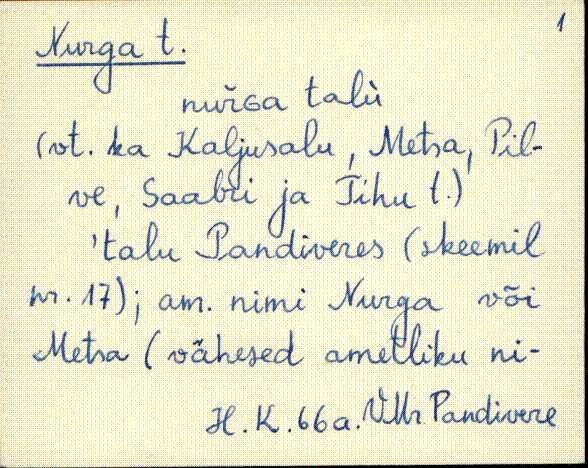 1
Nurga t.
nuřga talù
(vt. ka Kaljusalu, Metsa, Pil-
ve, Saabri ja Tihu t.)
'talu Pandiveres (skeemil
nr. 17); am. nimi Nurga või
Metsa (vähesed ametliku ni-
H.K. 66a. VMr. Pandivere